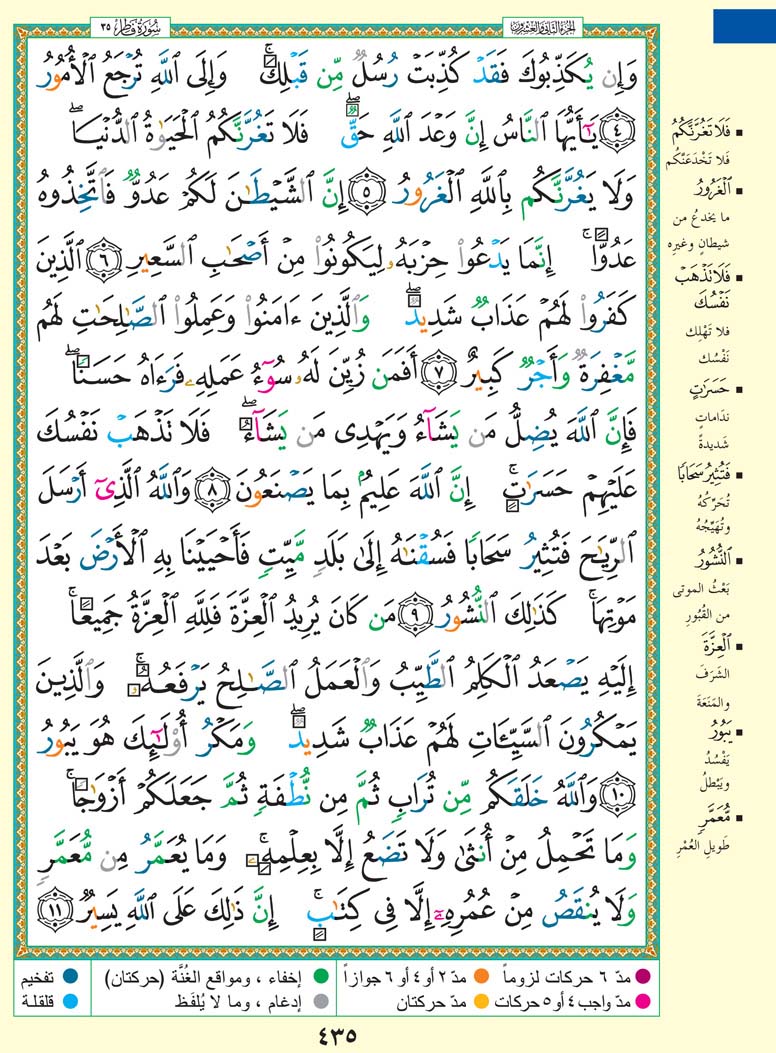 سُورَةُ فَاطِرٍ ٣٥
الجزء الثاني والعشرون
وَإِن يُكَذِّبُوكَ فَقَدْ كُذِّبَتْ رُسُلٌ مِّن قَبْلِكَ ۚ وَإِلَى ٱللَّهِ تُرْجَعُ ٱلْأُمُورُ
﴿٤﴾ يَـٰٓأَيُّهَا ٱلنَّاسُ إِنَّ وَعْدَ ٱللَّهِ حَقٌّ ۖ فَلَا تَغُرَّنَّكُمُ ٱلْحَيَوٰةُ ٱلدُّنْيَا ۖ
وَلَا يَغُرَّنَّكُم بِٱللَّهِ ٱلْغَرُورُ ﴿٥﴾ إِنَّ ٱلشَّيْطَـٰنَ لَكُمْ عَدُوٌّ فَٱتَّخِذُوهُ
عَدُوًّا ۚ إِنَّمَا يَدْعُوا۟ حِزْبَهُۥ لِيَكُونُوا۟ مِنْ أَصْحَـٰبِ ٱلسَّعِيرِ ﴿٦﴾ ٱلَّذِينَ
كَفَرُوا۟ لَهُمْ عَذَابٌ شَدِيدٌ ۖ وَٱلَّذِينَ ءَامَنُوا۟ وَعَمِلُوا۟ ٱلصَّـٰلِحَـٰتِ لَهُم
مَّغْفِرَةٌ وَأَجْرٌ كَبِيرٌ ﴿٧﴾ أَفَمَن زُيِّنَ لَهُۥ سُوٓءُ عَمَلِهِۦ فَرَءَاهُ حَسَنًا ۖ
فَإِنَّ ٱللَّهَ يُضِلُّ مَن يَشَآءُ وَيَهْدِى مَن يَشَآءُ ۖ فَلَا تَذْهَبْ نَفْسُكَ
عَلَيْهِمْ حَسَرَٰتٍ ۚ إِنَّ ٱللَّهَ عَلِيمٌۢ بِمَا يَصْنَعُونَ ﴿٨﴾ وَٱللَّهُ ٱلَّذِىٓ أَرْسَلَ
ٱلرِّيَـٰحَ فَتُثِيرُ سَحَابًا فَسُقْنَـٰهُ إِلَىٰ بَلَدٍ مَّيِّتٍ فَأَحْيَيْنَا بِهِ ٱلْأَرْضَ بَعْدَ
مَوْتِهَا ۚ كَذَٰلِكَ ٱلنُّشُورُ ﴿٩﴾ مَن كَانَ يُرِيدُ ٱلْعِزَّةَ فَلِلَّهِ ٱلْعِزَّةُ جَمِيعًا ۚ
إِلَيْهِ يَصْعَدُ ٱلْكَلِمُ ٱلطَّيِّبُ وَٱلْعَمَلُ ٱلصَّـٰلِحُ يَرْفَعُهُۥ ۚ وَٱلَّذِينَ
يَمْكُرُونَ ٱلسَّيِّـَٔاتِ لَهُمْ عَذَابٌ شَدِيدٌ ۖ وَمَكْرُ أُو۟لَـٰٓئِكَ هُوَ يَبُورُ
﴿١٠﴾ وَٱللَّهُ خَلَقَكُم مِّن تُرَابٍ ثُمَّ مِن نُّطْفَةٍ ثُمَّ جَعَلَكُمْ أَزْوَٰجًا ۚ
وَمَا تَحْمِلُ مِنْ أُنثَىٰ وَلَا تَضَعُ إِلَّا بِعِلْمِهِۦ ۚ وَمَا يُعَمَّرُ مِن مُّعَمَّرٍ
وَلَا يُنقَصُ مِنْ عُمُرِهِۦٓ إِلَّا فِى كِتَـٰبٍ ۚ إِنَّ ذَٰلِكَ عَلَى ٱللَّهِ يَسِيرٌ ﴿١١﴾
▪ فَلَا تَغُرَّنَّكُمُ
فَلَا تَخْدَعَنَّكُم
▪ ٱلْغَرُورُ
ما يخدعُ من
شيطانٍ وغيرِه
▪ فَلَا تَذْهَبْ
نَفْسُكَ
فلا تَهْلِك
نَفْسُك
▪ حَسَرَٰتٍ
نَدَاماتٍ
شديدةً
▪ فَتُثِيرُ سَحَابًا
تُحَرِّكُهُ
وتُهَيِّجُهُ
▪ ٱلنُّشُورُ
بَعْثُ الموتى
من القُبُورِ
▪ ٱلْعِزَّةَ
الشرَفَ
والمَنَعَةَ
▪ يَبُورُ
يَفْسُدُ
ويَبْطلُ
▪ مُّعَمَّرٍ
طَويلِ العُمْرِ
مدّ ٦ حركات لزوماً مدّ ٢ أو ٤ أو ٦ جوازاً إخفاء ، ومواقع الغُنَّة (حركتان) تفخيم
مدّ واجب ٤ أو ٥ حركات مدّ حركتان إدغام ، وما لا يُلفَظ قلقلة
٤٣٥